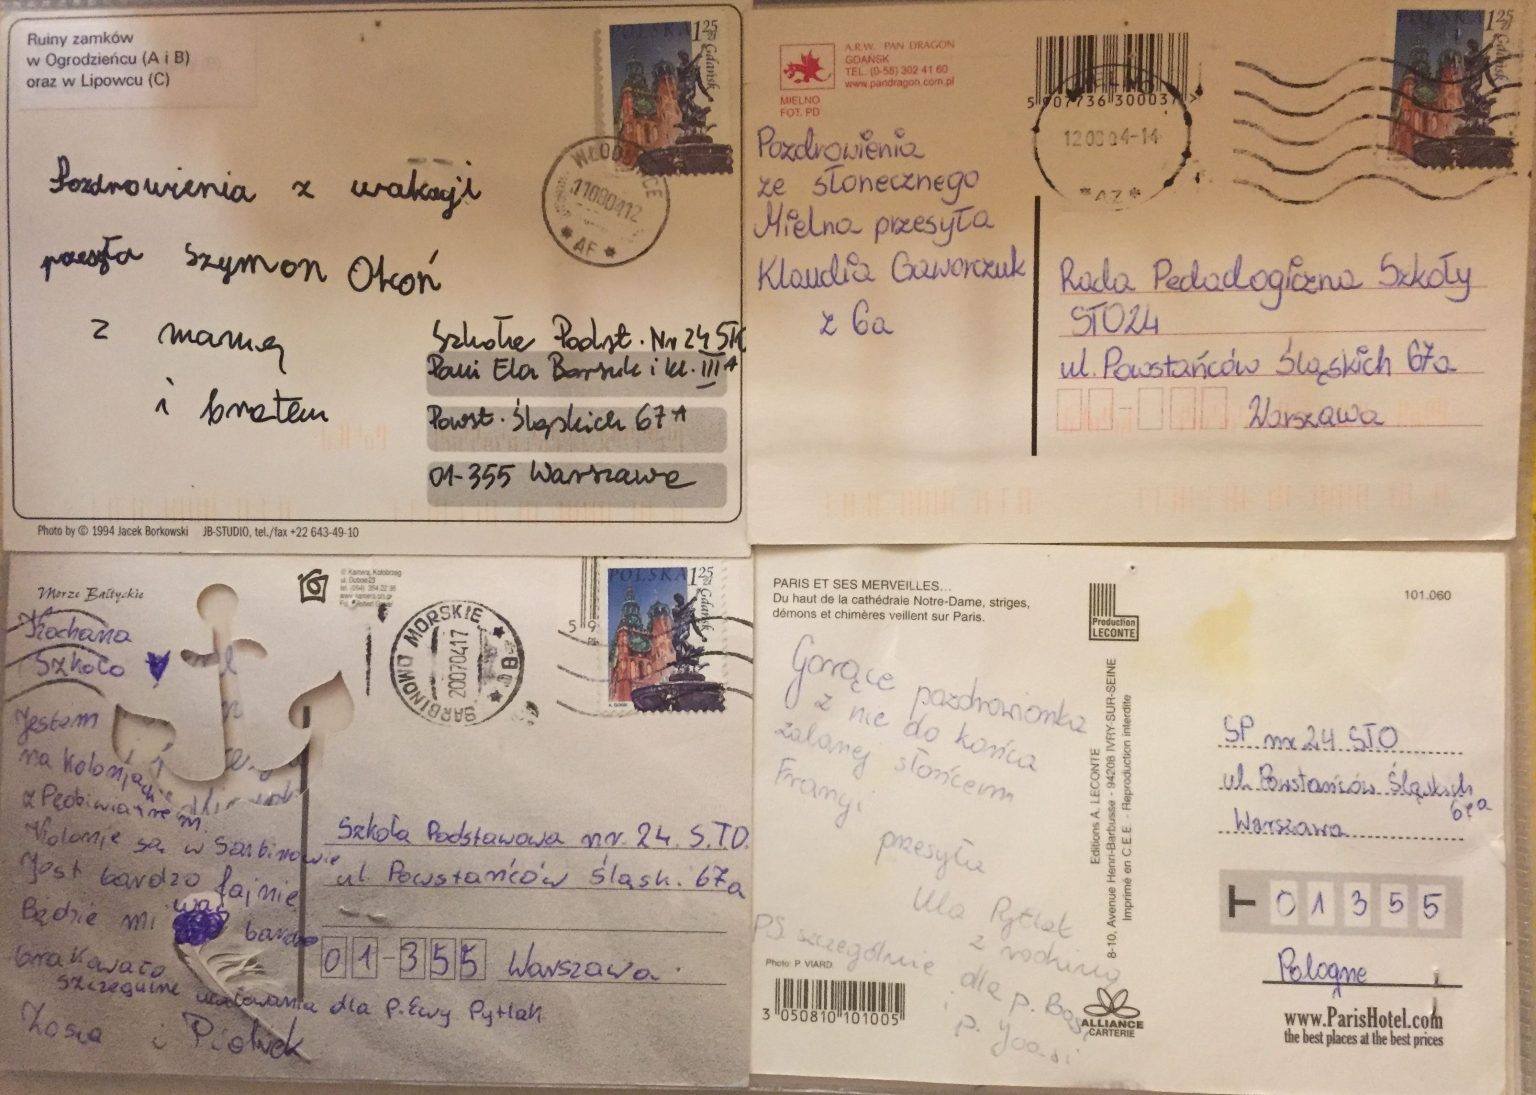 Ruiny zamków
w Ogrodzieńcu (A i B)
oraz w Lipowcu (C)
POLSKA 1,25 zł
Gdańsk
11080412
* AF *
Pozdrowienia z wakacji
przesyła Szymon Okoń
z mamą
i bratem
Szkoła Podst. Nr 24 ST
Pani Ela Borsuk i kl. III A
Powst. Śląskich 67 A
01-355 Warszawa
Photo by © 1994 Jacek Borkowski JB-STUDIO, tel./fax +22 643-49-10
A.R.W. PAN DRAGON
GDAŃSK
TEL. (0-58) 302 41 60
www.pandragon.com.pl
MIELNO
FOT. PD
5 907736 300037 >
12 08 04-14
*AZ*
POLSKA 1,25 zł
Gdańsk
Pozdrowienia
ze słonecznego
Mielna przesyła
Klaudia Gaworczuk
z 6a
Rada Pedadogiczna Szkoły
STO24
ul. Powstańców Śląskich 67a
Warszawa
Morze Bałtyckie
© Kamera, Kołobrzeg
SARBINOWO MORSKIE
20070417
POLSKA 1,25 zł
Gdańsk
Kochana
Szkoło
Jestem
na koloniach
Kolonie są w Sarbinowie
Jest bardzo fajnie
Będzie mi was bardzo
brakowało
szczegulne ucałowania dla p. Ewy Pytlak
Zosia i Piotrek
Szkoła Podstawowa nr. 24 S.T.O.
ul. Powstańców Śląsk. 67a
01-355 Warszawa
PARIS ET SES MERVEILLES...
Du haut de la cathédrale Notre-Dame, striges,
démons et chimères veillent sur Paris.
Production
LECONTE
101.060
Gorące pozdrowionka
z nie do końca
zalanej słońcem
Francji
przesyła
Ula Pytlak
z rodziną
PS szczególnie dla p. Basi
i p. Joasi
Editions A. LECONTE
8-10, Avenue Henri-Barbusse - 94208 IVRY-SUR-SEINE
Imprimé en C.E.E. - Reproduction interdite
Photo: P. VIARD
3 050810 101005
ALLIANCE
CARTERIE
SP nr 24 STO
ul. Powstańców Śląskich
67a
Warszawa
T 01355
Pologne
www.ParisHotel.com
the best places at the best prices